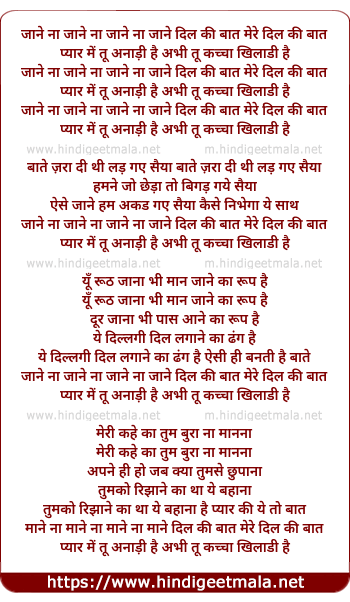 जाने ना जाने ना जाने ना जाने दिल की बात मेरे दिल की बात
प्यार में तू अनाड़ी है अभी तू कच्चा खिलाडी है
जाने ना जाने ना जाने ना जाने दिल की बात मेरे दिल की बात
प्यार में तू अनाड़ी है अभी तू कच्चा खिलाडी है
जाने ना जाने ना जाने ना जाने दिल की बात मेरे दिल की बात
प्यार में तू अनाड़ी है अभी तू कच्चा खिलाडी है
www.hindigeetmala.net m.hindigeetmala.net
बाते ज़रा दी थी लड़ गए सैया बाते ज़रा दी थी लड़ गए सैया
हमने जो छेड़ा तो बिगड़ गये सैया
ऐसे जाने हम अकड गए सैया कैसे निभेगा ये साथ
जाने ना जाने ना जाने ना जाने दिल की बात मेरे दिल की बात
प्यार में तू अनाड़ी है अभी तू कच्चा खिलाडी है
www.hindigeetmala.net m.hindigeetmala.net
यूँ रूठ जाना भी मान जाने का रूप है
यूँ रूठ जाना भी मान जाने का रूप है
दूर जाना भी पास आने का रूप है
ये दिल्लगी दिल लगाने का ढंग है
ये दिल्लगी दिल लगाने का ढंग है ऐसी ही बनती है बाते
जाने ना जाने ना जाने ना जाने दिल की बात मेरे दिल की बात
प्यार में तू अनाड़ी है अभी तू कच्चा खिलाडी है
www.hindigeetmala.net m.hindigeetmala.net
मेरी कहे का तुम बुरा ना मानना
मेरी कहे का तुम बुरा ना मानना
अपने ही हो जब क्या तुमसे छुपाना
तुमको रिझाने का था ये बहाना
तुमको रिझाने का था ये बहाना है प्यार की ये तो बात
माने ना माने ना माने ना माने दिल की बात मेरे दिल की बात
प्यार में तू अनाड़ी है अभी तू कच्चा खिलाडी है
https://www.hindigeetmala.net